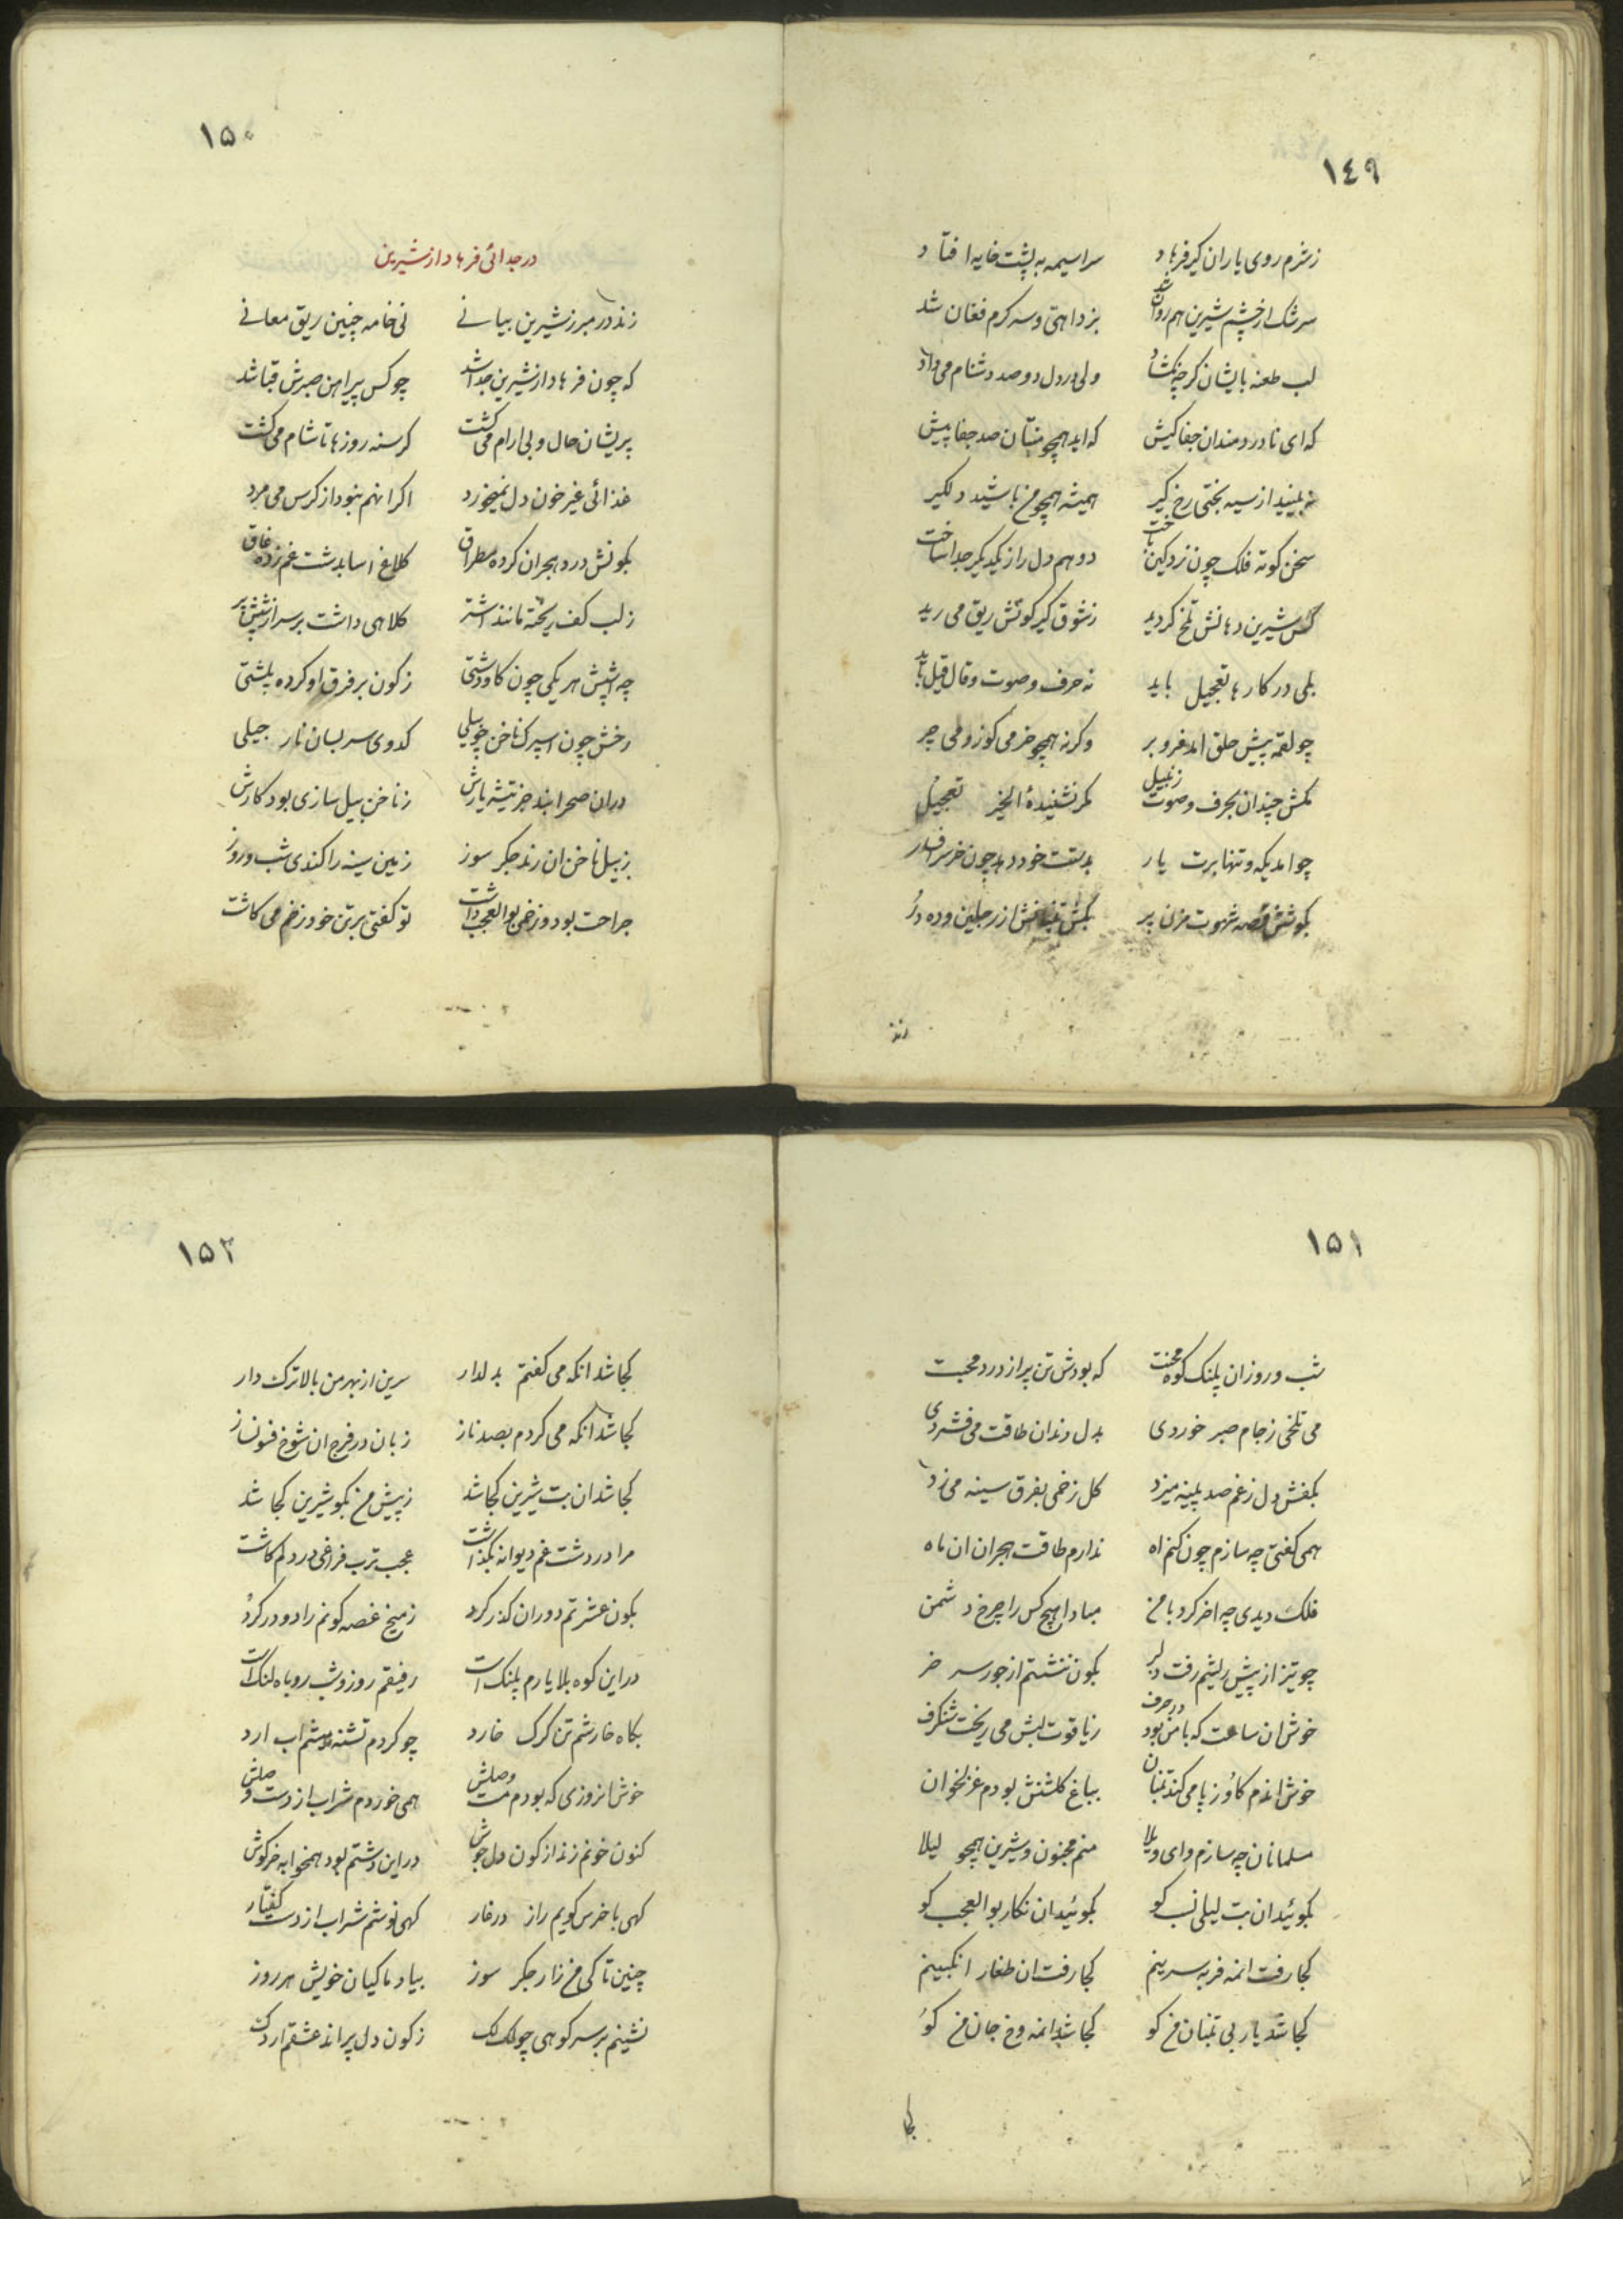 ١٤٩
ز شرم روی یاران کیر فرهاد سراسیمه به پشت خایه افتاد
سرشک از چشم شیرین هم روان شد بزد اهی و سرکرم فغان شد
لب طعنه بایشان کرچه نکشاد ولی در دل دوصد دشنام می داد
که ای نادردمندان جفا کیش که اید همچو منتان صد جفا پیش
نه بینید از سیه بختی رخ کیر همیشه همچو من باشید دلکیر
سخن کوته فلک چون نرد کین باخت دو همدل را ز یکدیکر جدا ساخت
کس شیرین دهانش تلخ کردید ز شوق کیر کونش ریق می رید
بلی در کارها تعجیل باید نه حرف و صوت و قال قیل باید
چو لقمه پیش حلق امد فرو بر وکرنه همچو خر می کوز و می چر
مکش چندان بحرف و صوت زنبیل مکر نشنیدهٔ الخیر تعجیل
چو امد یکه و تنها برت یار بدستت خود دهد چون خر سر افسار
بکوشش قصه شهوت مزن پر بکش تنبانش از رجلین و ده در
زند
١٥٠
در جدائی فرهاد از شیرین
زند در مبرز شیرین بیانی نی خامه چنین ریق معانی
که چون فرهاد از شیرین جدا شد چو کس پیراهن صبرش قبا شد
پریشان حال و بی ارام می کشت کرسنه روزها تا شام می کشت
غذائی غیر خون دل نمیخورد اکر انهم نبود از کرس می مرد
بکونش درد هجران کرده مطراق کلاغ اسا بدشت غم زده غاق
ز لب کف ریخته مانند اشتر کلاهی داشت بر سر از شپش پر
چه اشپش هر یکی چون کاو دشتی ز کون بر فرق او کرده پلشتی
رخش چون اسپرک ناخن چو بیلی کدوی سر بسان نار جیلی
دران صحرا نبد جز تیشه یارش ز ناخن بیل سازی بود کارش
ز بیل ناخن ان رند جکر سوز زمین سینه را کندی شب و روز
جراحت بود و زخم بوالعجب داشت تو کفتی بر تن خود زخم می کاشت
١٥١
شب و روز ان پلنک کوه محنت که بودش تن پر از درد محبت
می تلخی ز جام صبر خوردی بدل دندان طاقت می فشردی
بکفش دل ز غم صد پینه میزد کل زخمی بفرق سینه می زد
همی کفتی چه سازم چون کنم اه ندارم طاقت هجران ان ماه
فلک دیدی چه اخر کرد با من مبادا هیچ کس را چرخ دشمن
چو تیز از پیش ریشم رفت دلبر بکون ننشستم از جور سر خر
خوش ان ساعت که با من بود در حرف ز یاقوت لبش می ریخت شنکرف
خوش اندم کاو ز پا می کند تنبان بباغ کلشنش بودم غزلخوان
مسلمانان چه سازم وای ویلا منم مجنون و شیرین همچو لیلا
بکوئید ان بت لیلی نسب کو بکوئید ان نکار بوالعجب کو
کجا رفت انمه فربه سرینم کجا رفت ان طغار انکبینم
کجا شد یار بی تنبان من کو کجا شد انمه و خ جان من کو
کجا
١٥٢
کجا شد انکه می کفتم بدلدار سرین از بهر من بالاترک دار
کجا شد انکه می کردم بصد ناز زبان در فرج ان شوخ فسونساز
کجا شد ان بت شیرین کجا شد ز پیش من بکو شیرین کجا شد
مرا در دشت غم دیوانه بکذاشت عجب ترب فراغی در دلم کاشت
بکون عشرتم دوران کذر کرد ز میخ غصه کونم را دو در کرد
در این کوه بلا یارم پلنک است رفیقم روز و شب روباه لنک است
بکاه خارشم تن کرک خارد چو کردم تشنه میشم اب ارد
خوش انروزی که بودم مست وصلش همی خوردم شراب از دست وصلش
کنون خونم زند از کون دل جوش در این دشتم بود همخوابه خرکوش
کهی با خرس کویم راز در غار کهی نوشم شراب از دست کفتار
چنین تا کی من زار جکر سوز بیاد ماکیان خویش هر روز
نشینم بر سر کوهی چو لک لک ز کون دل پراند عشقم اردک